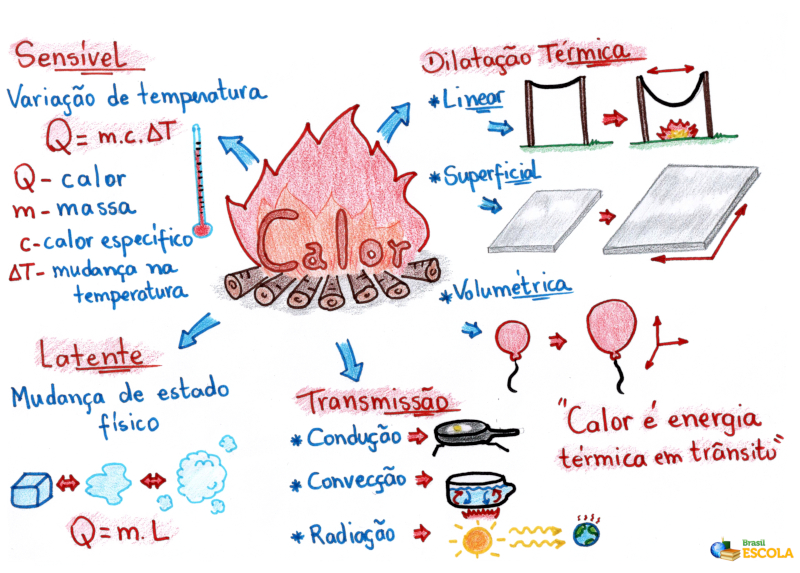 Sensível
Variação de temperatura
Q = m.c.ΔT
Q - calor
m - massa
c - calor específico
ΔT - mudança na
temperatura
Calor
Dilatação Térmica
* Linear
* Superficial
* Volumétrica
Latente
Mudança de estado
físico
Q = m.L
Transmissão
* Condução
* Convecção
* Radiação
"Calor é energia
térmica em trânsito"
Brasil
ESCOLA